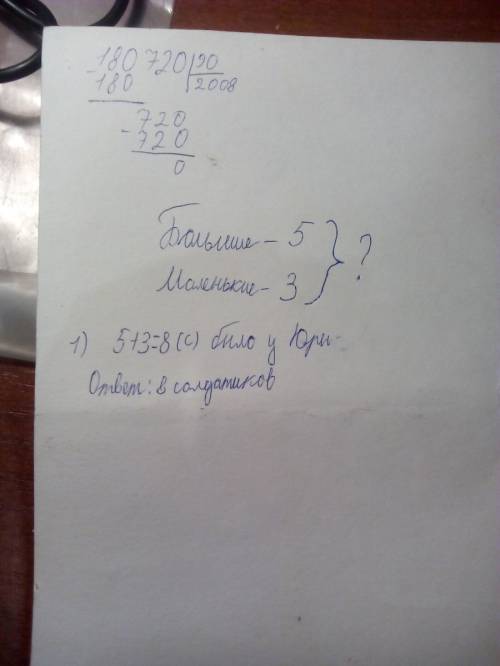 180 720 | 90
- 180 | 2008
720
- 720
0
Большие - 5 } ?
Маленькие - 3
1) 5+3=8 (с) было у Юры.
Ответ: 8 солдатиков